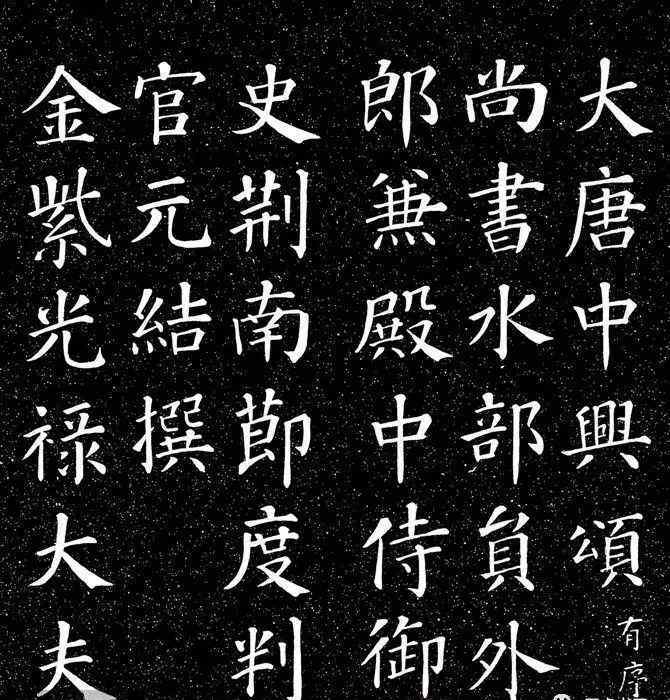 大唐中興頌有序
尚書水部員外
郎兼殿中侍御
史荆南節度判
官元結撰
金紫光禄大夫